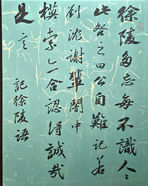 徐陵多忘每不識人人
此咎之曰公自難記若
劉沈謝輩闇中
摸索亦合認得誠哉
是言
記徐陵語